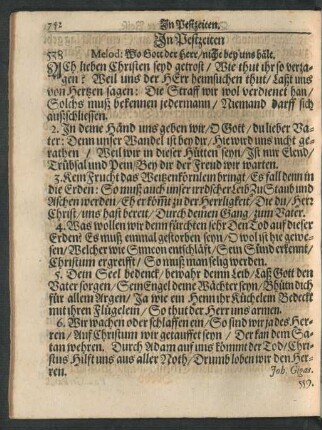 742 In Pestzeiten.
In Pestzeiten
558 Melod: Wo Gott der Herr/ nicht bey uns hält.
ACh lieben Christen seyd getrost/ Wie thut ihr so verza-
gen? Weil uns der HErr heimsuchen thut/ Laßt uns
von Hertzen sagen: Die Straff wir wol verdienet han/
Solchs muß bekennen jedermann/ Niemand darff sich
außschliessen.
2. In deine Händ uns geben wir/ O Gott/ du lieber Va-
ter: Denn unser Wandel ist bey dir/ Hie wird uns nicht ge-
rathen/ Weil wir in dieser Hütten seyn/ Ist nur Elend/
Trübsal und Pein/ Bey dir der Freud wir warten.
3. Kein Frucht das Weitzenkörnlein bringt/ Es fall denn in
die Erden: So muß auch unser irrdscher Leib Zu Staub und
Aschen werden/ Eh er kömt zu der Herrligkeit/ Die du/ Herr
Christ/ uns hast bereit/ Durch deinen Gang zum Vater.
4. Was wollen wir denn fürchten sehr Den Tod auf dieser
Erden? Es muß einmal gestorben seyn/ O wol ist hie gewe-
sen/ Welcher wie Simeon entschläft/ Sein Sünd erkennt/
Christum ergreifft/ So muß man selig werden.
5. Dein Seel bedenck/ bewahr deinn Leib/ Laß Gott den
Vater sorgen/ Sein Engel deine Wächter seyn/ Bhüten dich
für allem Argen/ Ja wie ein Henn ihr Küchelein Bedeckt
mit ihren Flügelein/ So thut der Herr uns armen.
6. Wir wachen oder schlaffen ein/ So sind wir ja des Her-
ren/ Auf Christum wir getauffet seyn/ Der kan dem Sa-
tan wehren. Durch Adam auf uns kömmt der Tod/ Chri-
stus Hilft uns aus aller Noth/ Drumb loben wir den Her-
ren. Joh. Gigas.
559.